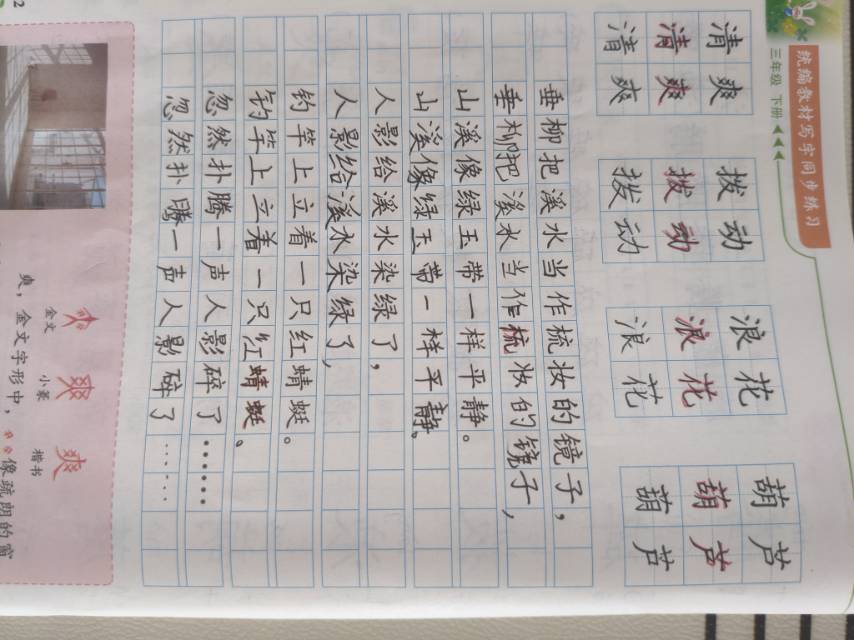 统编教材写字同步练习
三年级 下册
清爽 拨动 浪花 葫芦
清爽 拨动 浪花 葫芦
清爽 拨动 浪花 葫芦
垂柳把溪水当作梳妆的镜子，
垂柳把溪水当作梳妆的镜子，
山溪像绿玉带一样平静。
山溪像绿玉带一样平静。
人影给溪水染绿了，
人影给溪水染绿了，
钓竿上立着一只红蜻蜓。
钓竿上立着一只红蜻蜓。
忽然扑腾一声人影碎了……
忽然扑腾一声人影碎了……
金文 小篆 楷书
爽，金文字形中，
像疏朗的窗
2